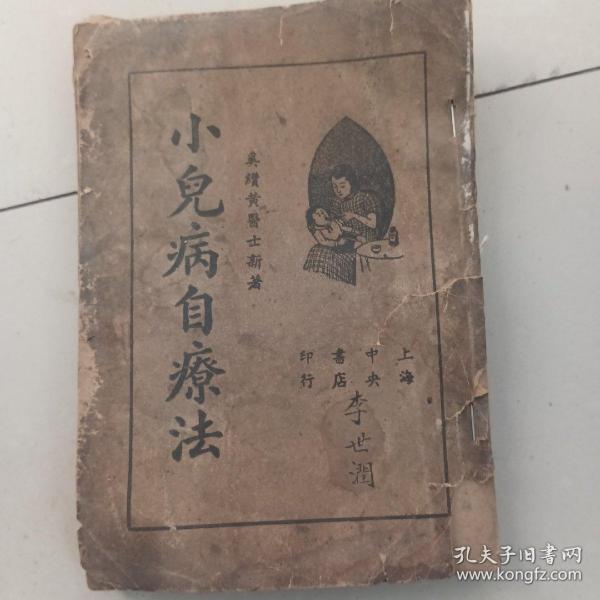 小兒病自療法
奚纘黄醫士新著
上海
中央
書店
印行
李世潤
孔夫子旧書网
www.kongfz.com